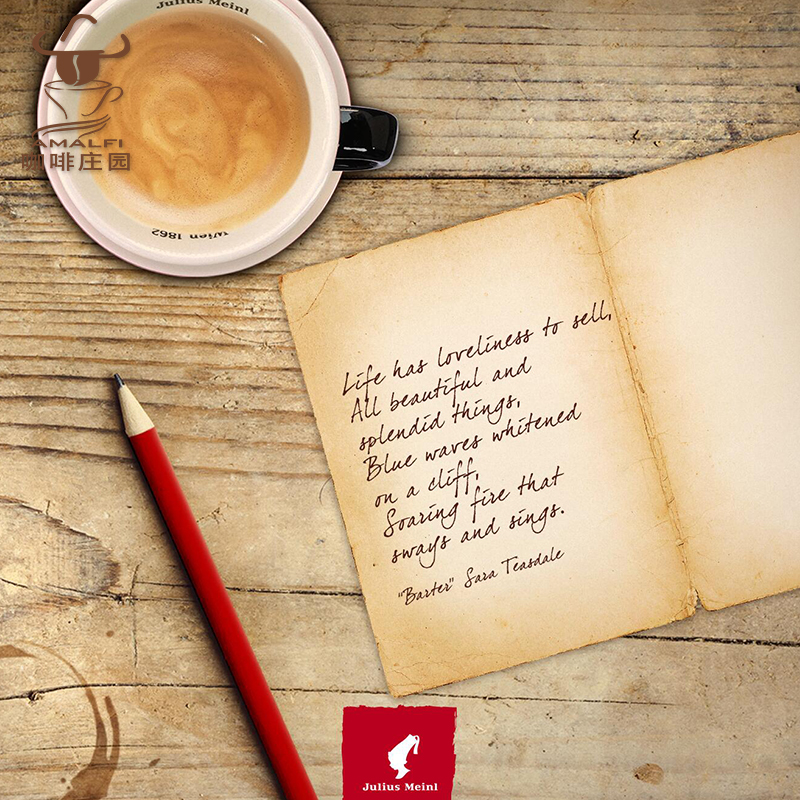 Julius Meinl
AMALFI
咖啡庄园
Wien 1862
Life has loveliness to sell,
All beautiful and
splendid things,
Blue waves whitened
on a cliff,
Soaring fire that
sways and sings.
"Barter" Sara Teasdale
Julius Meinl